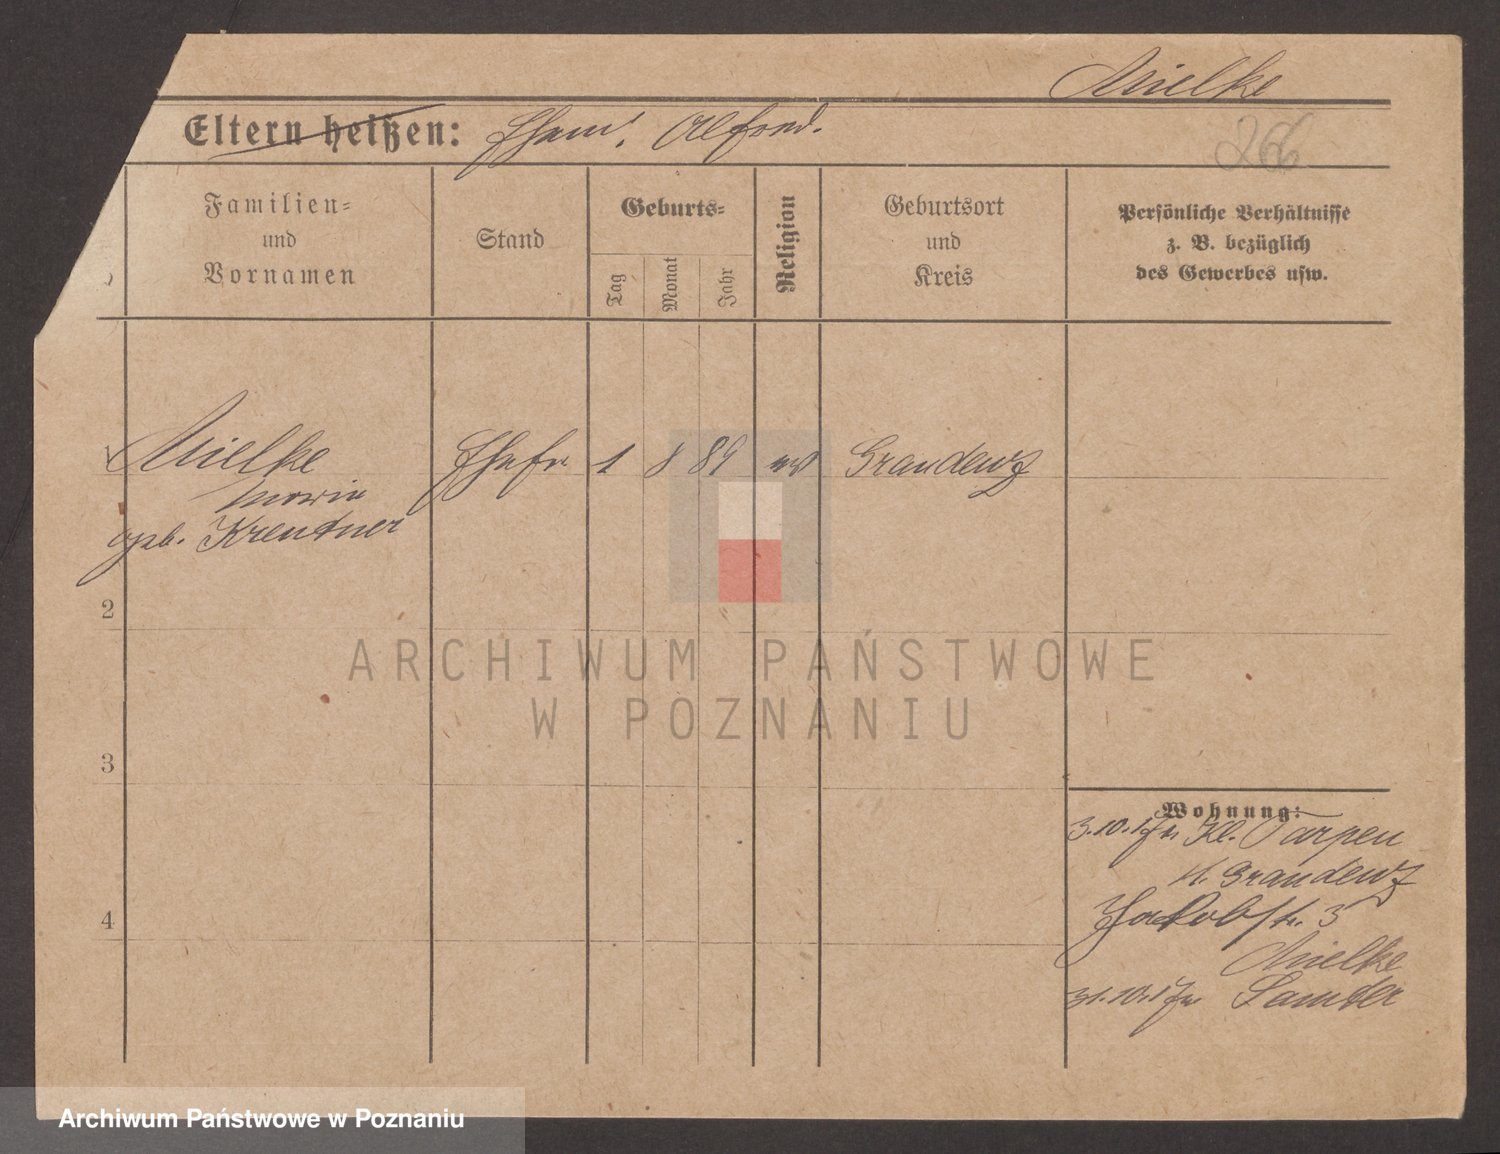 Mielke
Eltern heißen: Ehem. Alfred.
266
Familien-
und
Vornamen
Stand
Geburts-
Tag
Monat
Jahr
Religion
Geburtsort
und
Kreis
Persönliche Verhältnisse
z. B. bezüglich
des Gewerbes usw.
1 Mielke Ehefr 1 8 89 ev Graudenz
Maria
geb. Kreutner
2
3
4
Wohnung:
3.10.17 Kl. Tarpen
Graudenz
Jakobstr. 3
Mielke
31.10.17
ARCHIWUM PAŃSTWOWE
W POZNANIU
Archiwum Państwowe w Poznaniu